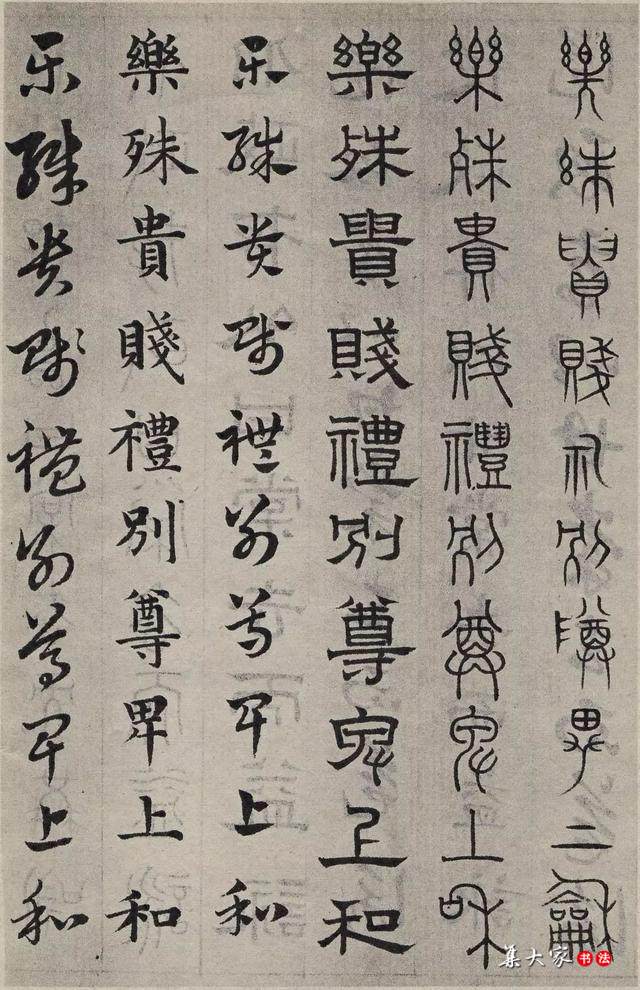 樂殊貴賤礼別尊卑二龢
樂殊貴賤禮別尊卑上和
樂殊貴賤禮別尊卑上和
乐殊贵賤禮別尊卑上和
樂殊貴賤禮別尊卑上和
乐殊贵賤禮別尊卑上和
集大家书法